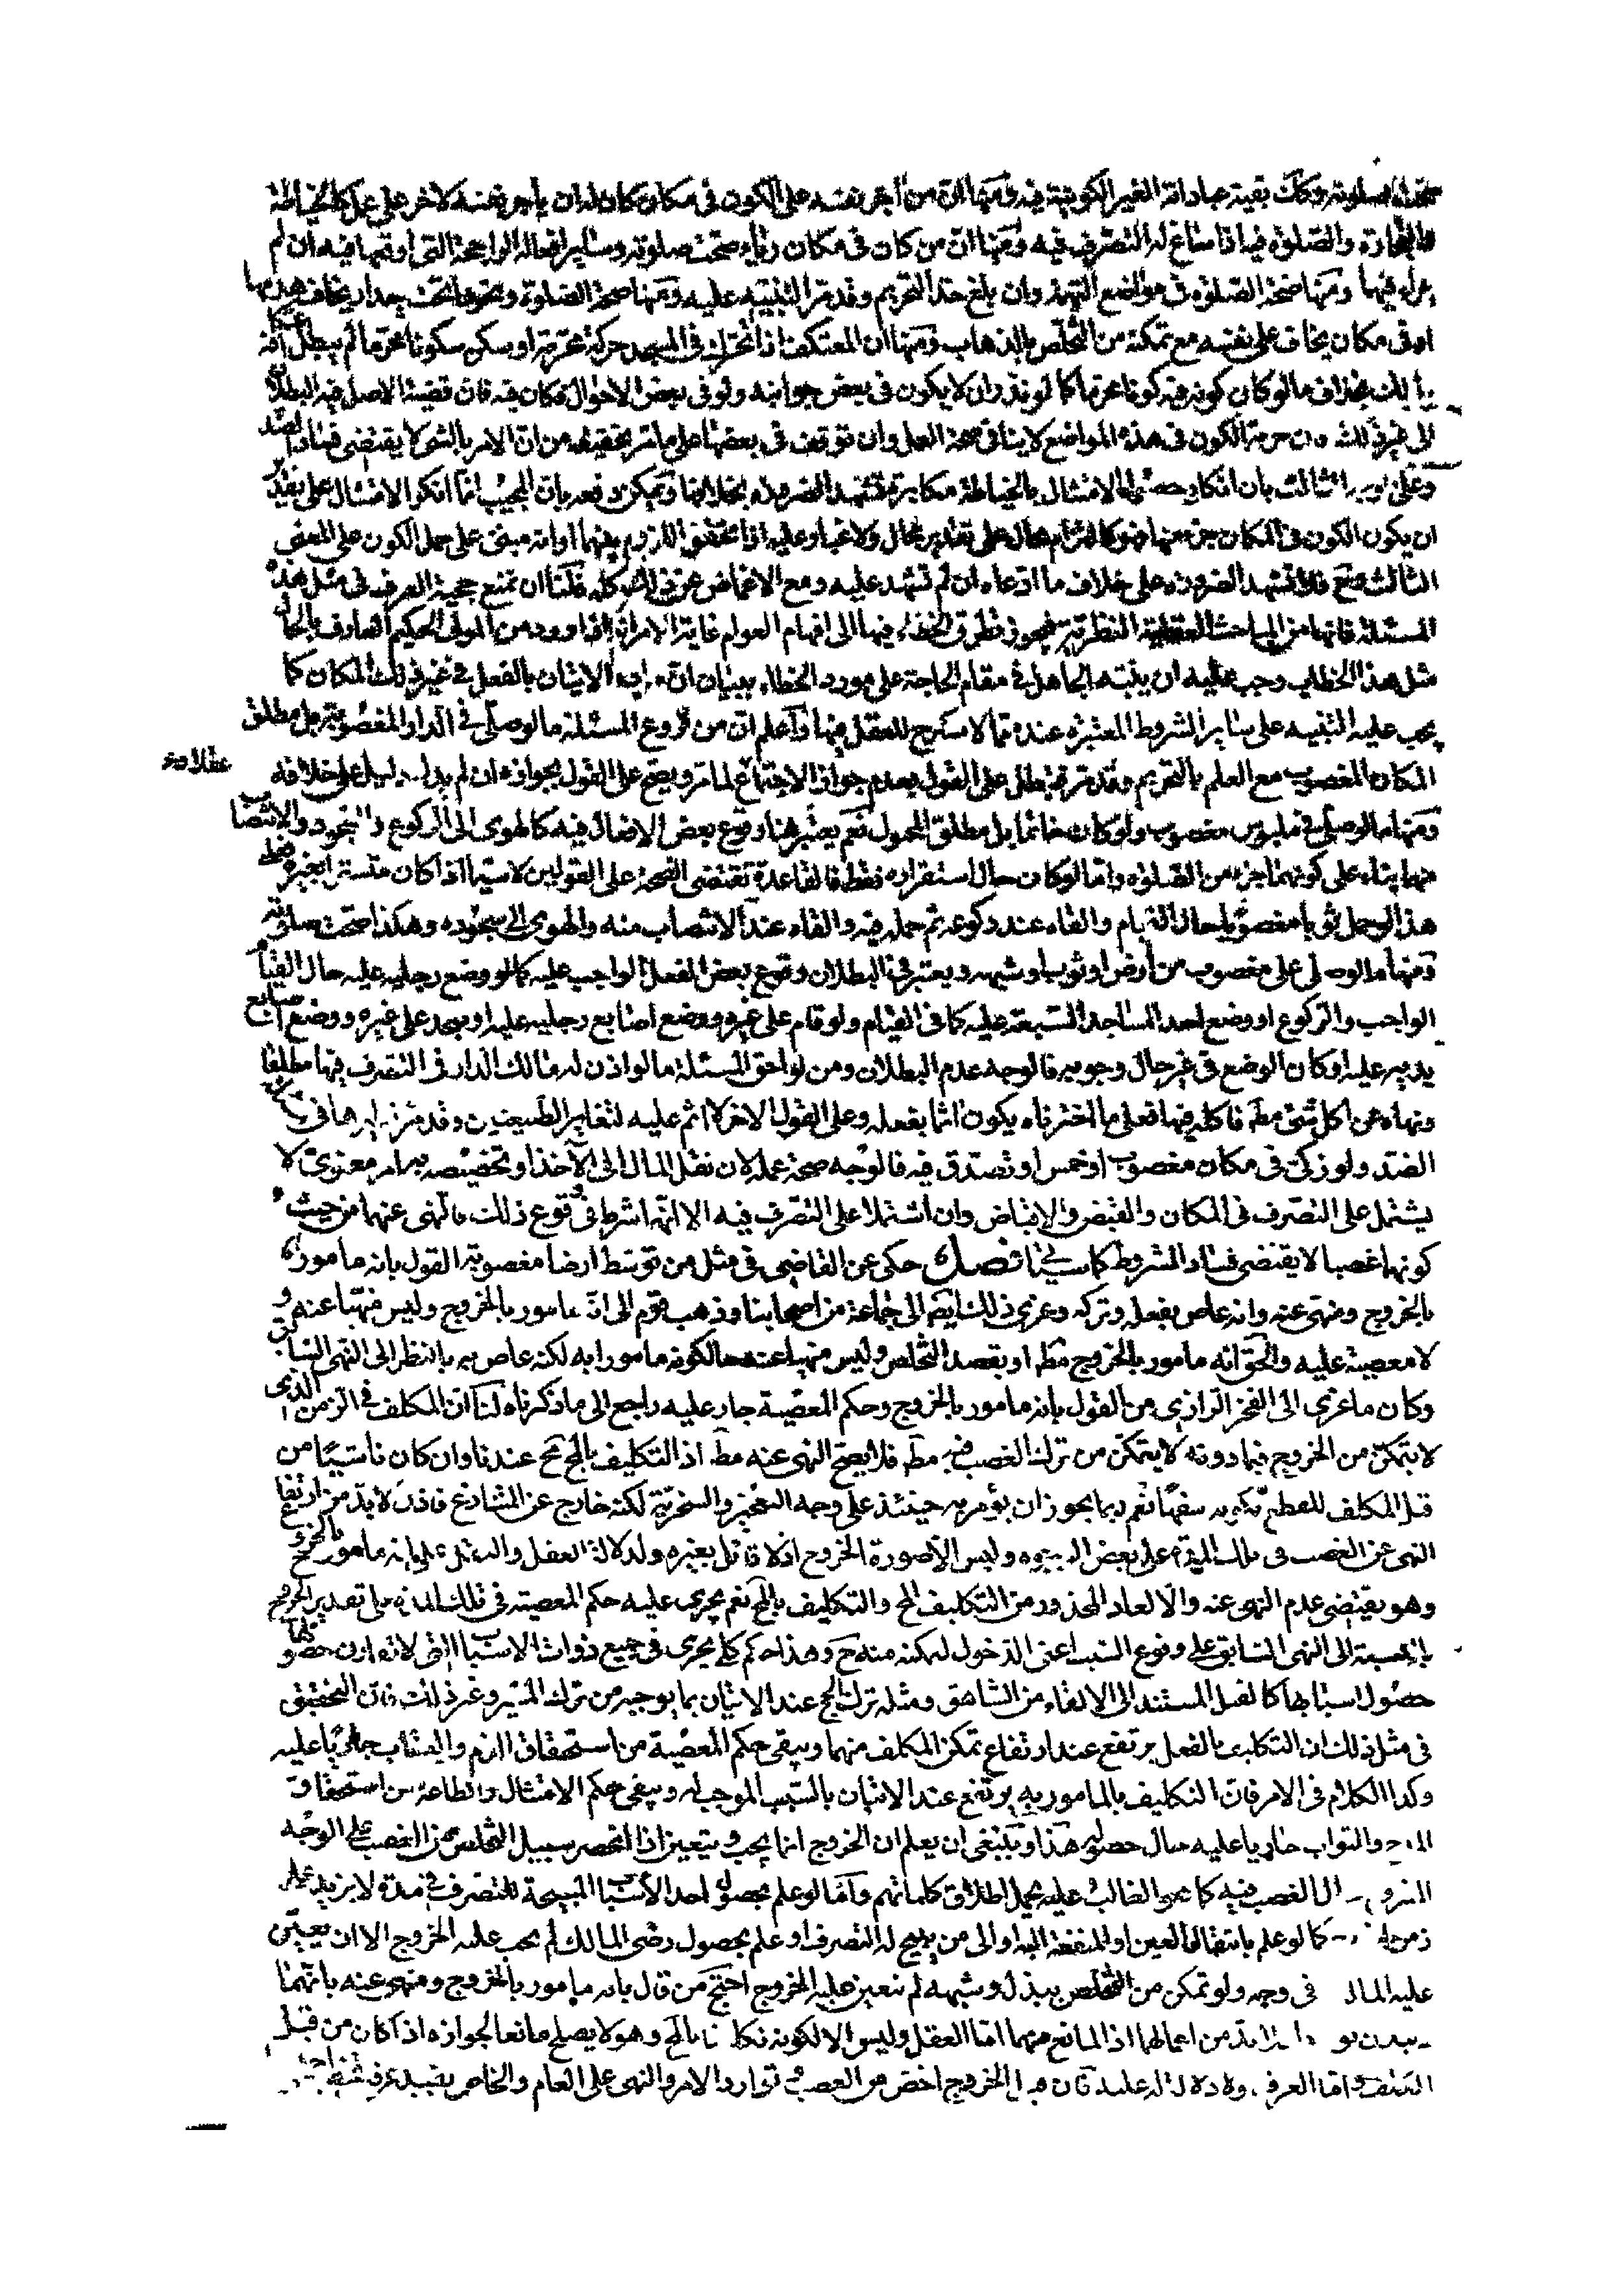 صحت صلوته وكك بقية عباداته الغير الكونية فيه ومنها ان من اجر نفسه على الكون في مكان كان له ان يأجر نفسه لاخر على عمل كالخياطة
والتجارة والصلوة فيه اذا ساغ له التصرف فيه ومنها ان من كان في مكان رياء صحت صلوته وساير افعاله الواجبة التي اوقعها فيه ان لم
يراء فيها ومنها صحة الصلوة في مواضع التهمة وان بلغ حد التحريم وقد مر التنبيه عليه ومنها صحة الصلوة ونحوها تحت جدار يخاف هدمها
او في مكان يخاف على نفسه مع تمكنه من التخلص بالذهاب ومنها ان المعتكف اذا تحرك في المسجد حركة محرمة او سكن سكونا محرما لم يبطل اعتكافه
بذلك بخلاف ما لو كان كونه فيه كونا محرما كما لو نذر ان لا يكون في بعض جوانبه ولو في بعض الاحوال فكان فيه فان قضية الاصل فيه البطلان
الى غير ذلك فان حرمة الكون في هذه المواضع لا ينافي صحة العمل وان توقف في بعضها على ما مر تحقيقه من ان الامر بالشئ لا يقتضي فساد الضد
وعلى الوجه الثالث بان انكار حصول الامتثال بالخياطة مكابرة تشهد الضرورة بخلافها ويمكن دفعه بان المجيب انما انكر الامتثال على تقدير
ان يكون الكون في المكان جزء منها فهو كالتزام محال على تقدير محال ولا غبار عليه اذا تحقق اللزوم بينهما او انه مبني على حمل الكون على المعنى
الثالث ومع فلا تشهد الضرورة على خلاف ما ادعاه ان لم تشهد عليه ومع الاغماض عن ذلك كله فلنا ان نمنع حجية العرف في مثل هذه
المسئلة فانها من المباحث العقلية النظرية فيجوز تطرق الخفاء فيها الى افهام العوام غاية الامر انه اذا ورد من المولى الحكيم العارف بالحال
مثل هذا الخطاب وجب عليه ان ينبه الجاهل في مقام الحاجة على مورد الخطاء ببيان ان مراده الاتيان بالفعل في غير ذلك المكان كما
يجب عليه التنبيه على ساير الشروط المعتبرة عنده مما لا مسرح للعقل فيها واعلم ان من فروع المسئلة ما لو صلى في الدار المغصوبة بل مطلق
المكان المغصوب مع العلم بالتحريم وقد مر فيبطل على القول بعدم جواز الاجتماع لما مر ويصح على القول بجوازه ان لم يدل دليل على خلافه
عقلا وع
ومنها ما لو صلى في ملبوس مغصوب ولو كان خاتما بل مطلق المحمول نعم يعتبر هنا وقوع بعض الافعال فيه كالهوى الى الركوع والسجود والانتصاب
منهما بناء على كونهما جزء من الصلوة واما لو كان حال استقراره فقط فالقاعدة تقتضي الصحة على القولين لا سيما اذا كان متسترا بغيره فعلى
هذا لو حمل ثوبا مغصوبا حال القيام والقاه عند ركوعه ثم حمله فيه والقاه عند الانتصاب منه والهوى الى سجوده وهكذا صحت صلوته
ومنها ما لو صلى على مغصوب من ارض او ثوب او شبهه ويعتبر في البطلان وقوع بعض الفعل الواجب عليه كما لو وضع رجليه عليه حال القيام
الواجب والركوع او وضع احد المساجد السبعة عليه كما في القيام ولو قام على غيره ووضع اصابع رجليه عليه او سجد على غيره ووضع اصابع
يديه عليه او كان الوضع في غير حال وجوبه فالوجه عدم البطلان ومن لواحق المسئلة ما لو اذن له مالك الدار في التصرف فيها مطلقا
ونهاه عن اكل شئ مط فاكله فيها فعلى ما اخترناه يكون اثما بفعله وعلى القول الاخر لا اثم عليه لتغاير الطبيعتين وقد مر نظيرها في مبحث
الضد ولو زكى في مكان مغصوب او خمس او تصدق فيه فالوجه صحة عمله لان نقل المال الى الآخذ او تخصيصه به امر معنوي لا
يشتمل على التصرف في المكان والقبض والاقباض وان اشتملا على التصرف فيه الا انهما شرط في وقوع ذلك والنهي عنهما من حيث
كونهما غصبا لا يقتضي فساد المشروط كما سيأتي فصل حكى عن القاضي في مثل من توسط ارضا مغصوبة القول بانه مامور
بالخروج ومنهى عنه وانه عاص بفعله وتركه وعزى ذلك ايضا الى جماعة من اصحابنا وذهب قوم الى انه مامور بالخروج وليس منهيا عنه و
لا معصية عليه والحق انه مامور بالخروج مط او بقصد التخلص وليس منهيا عنه حال كونه مامورا به لكنه عاص به بالنظر الى النهي السابق
وكان ما عزى الى الفخر الرازي من القول بانه مامور بالخروج وحكم المعصية جار عليه راجع الى ما ذكرناه لنا ان المكلف في الزمن الذي
لا يتمكن من الخروج فيما دونه لا يتمكن من ترك الغصب فيه مط فلا يصح النهي عنه مط اذ التكليف بالمح مح عندنا وان كان ناشيا من
قبل المكلف للقطع بكونه سفها نعم ربما يجوز ان يؤمر به حينئذ على وجه التعجيز والسخرية لكنه خارج عن المتنازع فاذن لا بد من ارتفاع
النهي عن الغصب في تلك المدة على بعض الوجوه وليس الا صورة الخروج اذ لا قائل بغيره ولدلالة العقل والنقل على انه مامور بالخروج
وهو يقتضي عدم النهي عنه والا لعاد المحذور من التكليف المح والتكليف بالمح نعم يجرى عليه حكم المعصية في تلك المدة على تقدير الخروج
بالنسبة الى النهي السابق على وقوع السبب اعنى الدخول لتمكنه منه ح وهذا حكم كلي يجرى في جميع ذوات الاسباب التي لا تقارن حصولها
حصول اسبابها كالقتل المستند الى الالقاء من الشاهق ومثله ترك الحج عند الاتيان بما يوجبه من ترك المسير وغير ذلك فان التحقيق
في مثل ذلك ان التكليف بالفعل يرتفع عند ارتفاع تمكن المكلف منهما ويبقى حكم المعصية من استحقاق الذم والعقاب جاريا عليه
وكذا الكلام في الامر فان التكليف بالمامور به يرتفع عند الاتيان بالسبب الموجب له ويبقى حكم الامتثال والطاعة من استحقاق
المدح والثواب جاريا عليه حال حصوله هذا وينبغي ان يعلم ان الخروج انما يجب ويتعين اذا انحصر سبيل التخلص من الغصب على الوجه
ال الغصب فيه كما هو الغالب عليه يحمل اطلاق كلماتهم واما لو علم بحصول احد الاسباب المبيحة للتصرف في مدة لا يزيد على
كما لو علم بانتقال العين او المنفعة اليه او الى من يبيح له التصرف او علم بحصول رضى المالك لم يجب عليه الخروج الا ان يعين
عليه المالك في وجه ولو تمكن من التخلص ببذل وشبهه لم يتعين عليه الخروج احتج من قال بانه مامور بالخروج ومنهى عنه بانهما
لا بد من اعمالهما اذ المانع منهما اما العقل وليس الا لكونه تكليفا بالمح وهو لا يصلح مانعا لجوازه اذا كان من قبل
المكلف واما العرف ولا دلالة له عليه فان الخروج اخص من الغصب توارد الامر والنهي على العام والخاص